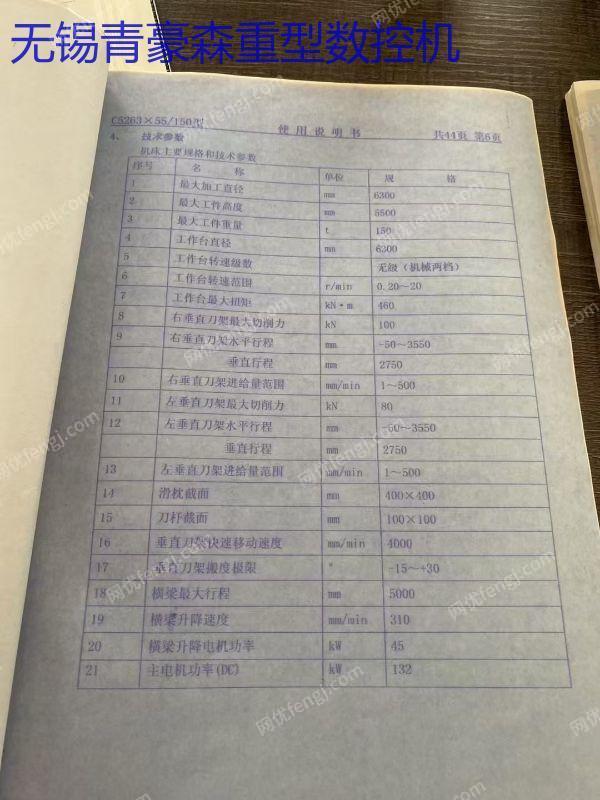 无锡青豪森重型数控机
C5263×55/150型 使用说明书 共44页 第6页
4、 技术参数
机床主要规格和技术参数
序号 名 称 单位 规 格
1 最大加工直径 mm 6300
2 最大工件高度 mm 5500
3 最大工件重量 t 150
4 工作台直径 mm 6300
5 工作台转速级数 无级(机械两档)
6 工作台转速范围 r/min 0.20~20
7 工作台最大扭矩 kN·m 460
8 右垂直刀架最大切削力 kN 100
9 右垂直刀架水平行程 mm -50~3550
垂直行程 mm 2750
10 右垂直刀架进给量范围 mm/min 1~500
11 左垂直刀架最大切削力 kN 80
12 左垂直刀架水平行程 mm -50~3550
垂直行程 mm 2750
13 左垂直刀架进给量范围 mm/min 1~500
14 滑枕截面 mm 400×400
15 刀杆截面 mm 100×100
16 垂直刀架快速移动速度 mm/min 4000
17 垂直刀架搬度极限 ° -15~+30
18 横梁最大行程 mm 5000
19 横梁升降速度 mm/min 310
20 横梁升降电机功率 kW 45
21 主电机功率(DC) kW 132
网优fengj.com